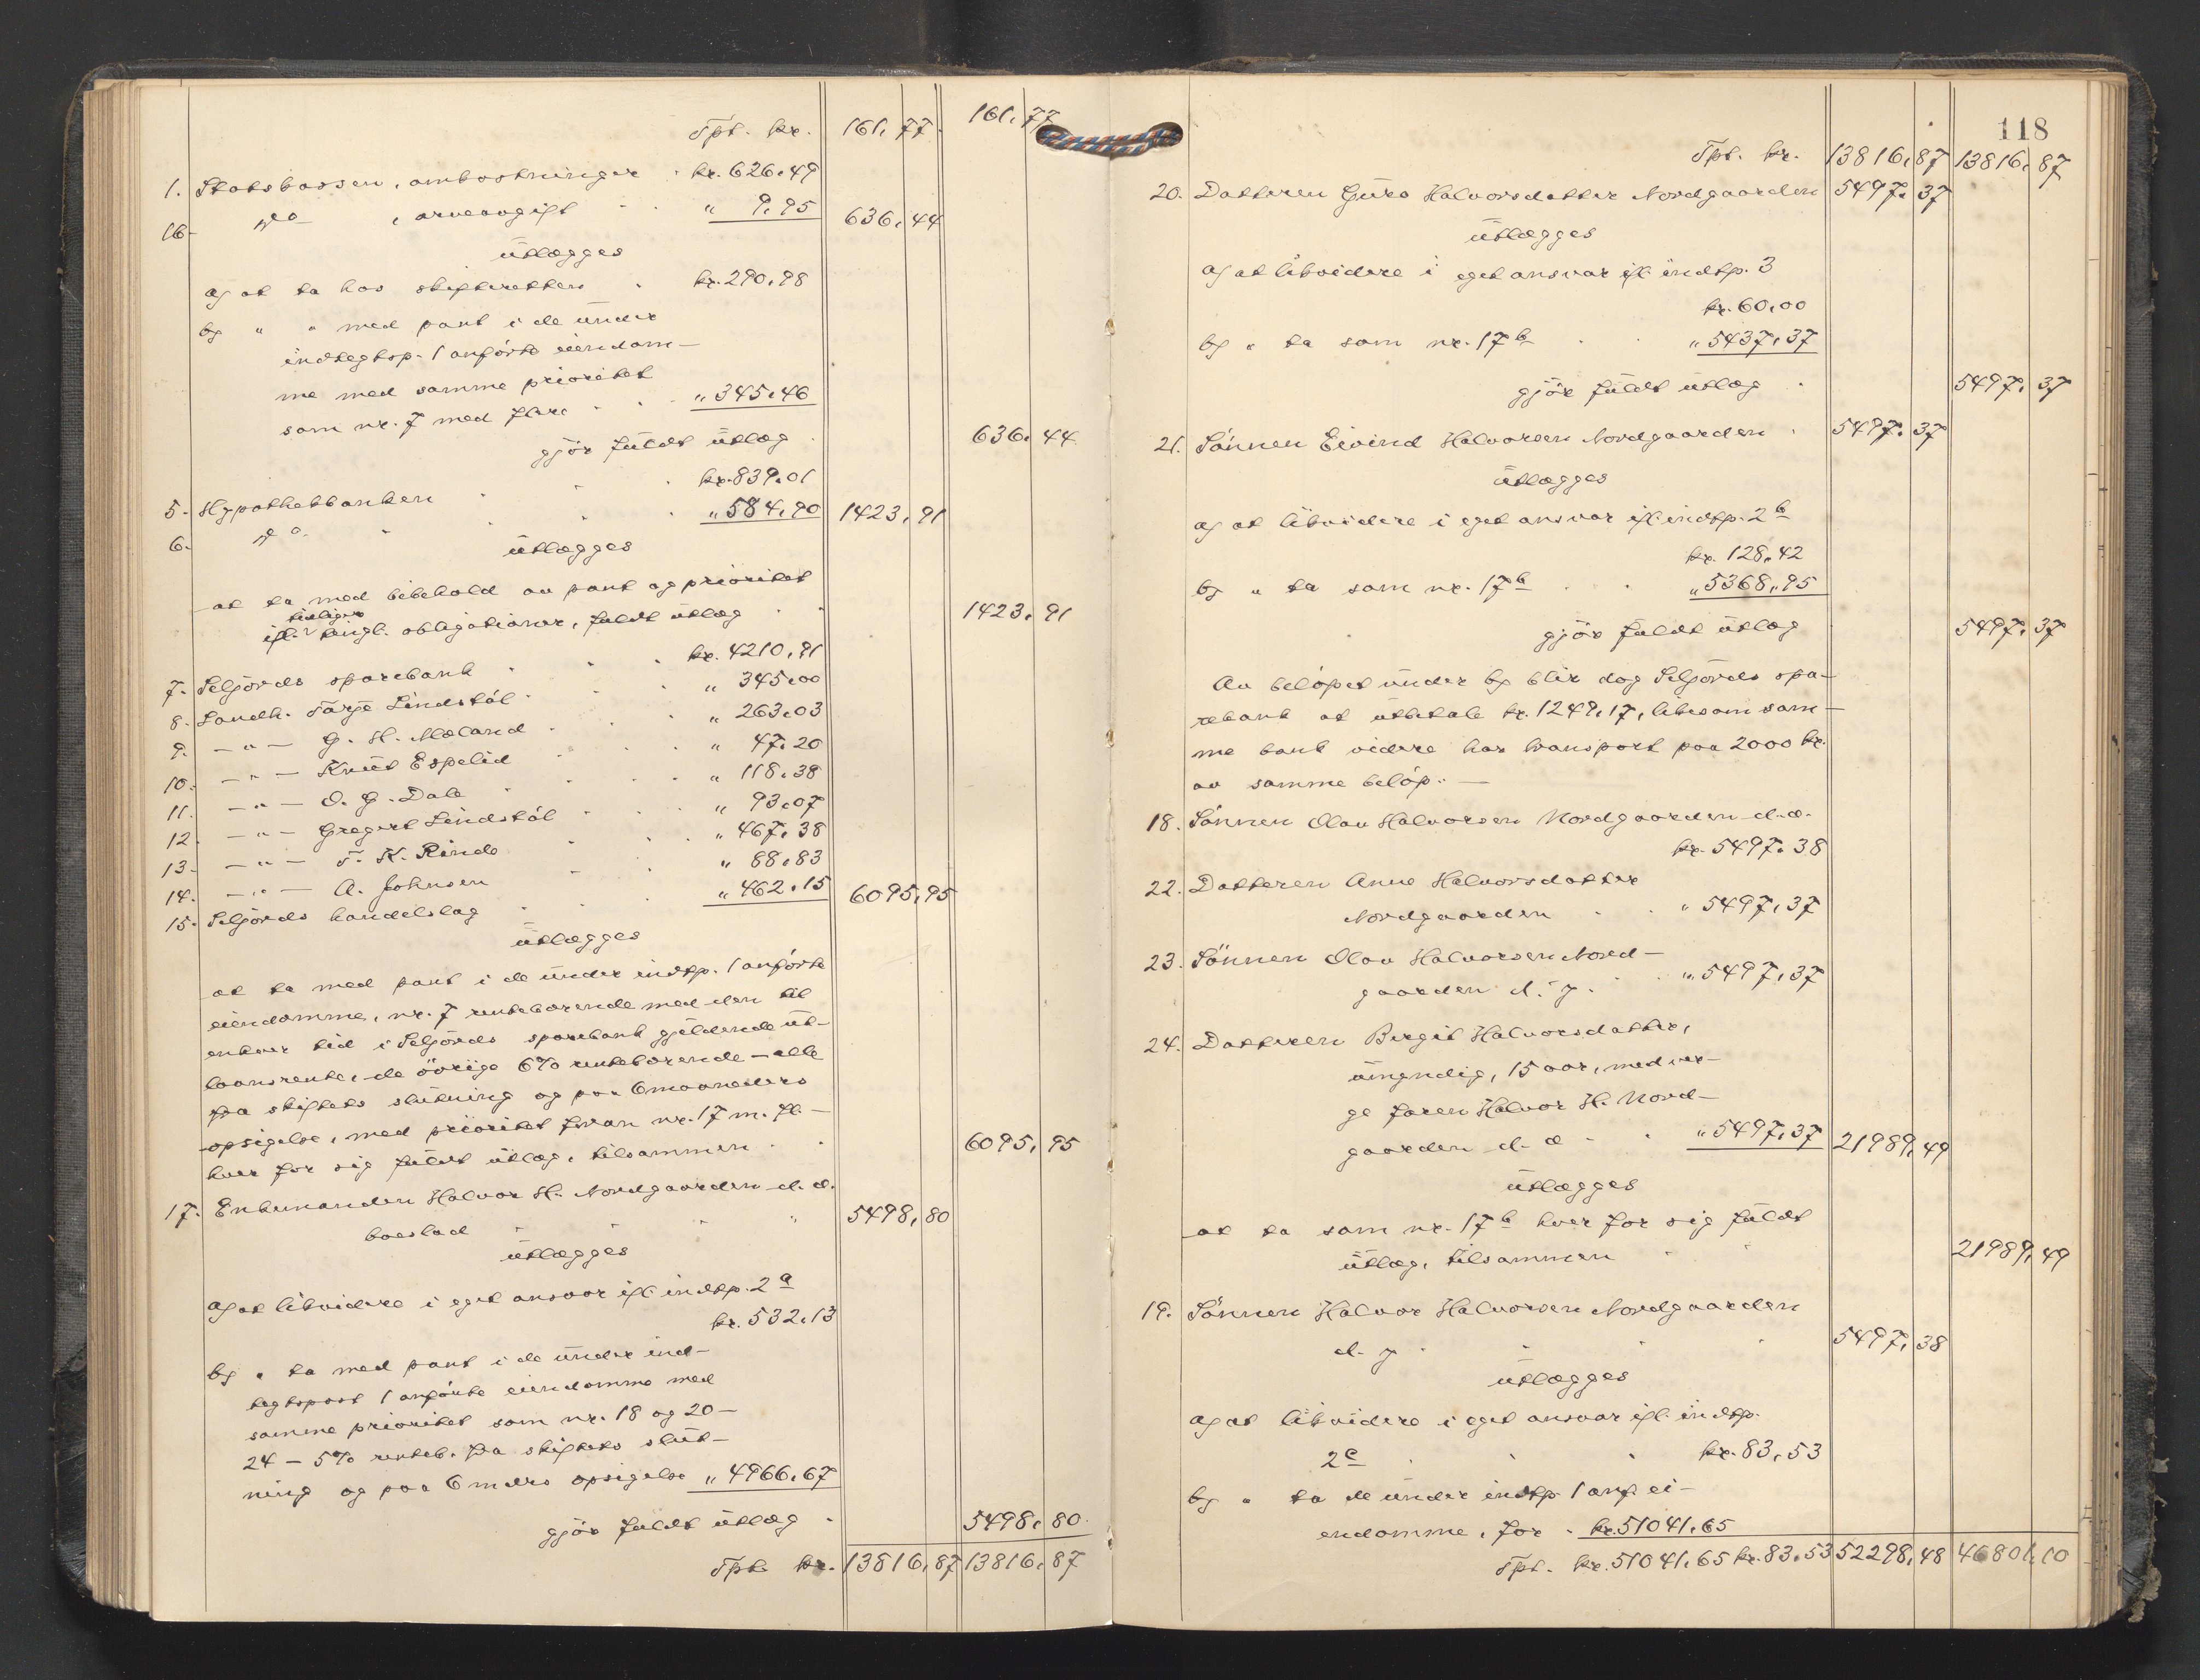 Tpt. kr. 161,77 161,77
1. Statskassen, omkostninger kr. 626,49
16. do , arveavgift " 9,95 636,44
utlægges
a) at ta hos skifteretten kr. 290,98
b) " " med pant i de under
indtegtsp. 1 anførte eiendom-
me med samme prioritet
som nr. 7 med flere " 345,46
gjør fuldt utlæg 636,44
5. Hypothekbanken kr. 839,01
6. do " 584,90 1423,91
utlægges
at ta med bibehold av pant og prioritet
ifl. tidligere tingl. obligationer, fuldt utlæg 1423,91
7. Seljords sparebank kr. 4210,91
8. Landh. Tarje Lindstøl " 345,00
9. -"- G. H. Mæland " 263,03
10. -"- Knut Espelid " 47,20
11. -"- O. G. Dale " 118,38
12. -"- Gregert Lindstøl " 93,07
13. -"- T. K. Rinde " 467,38
14. -"- A. Johnsen " 88,83
15. Seljords handelslag " 462,15 6095,95
utlægges
at ta med pant i de under indtp. 1 anførte
eiendomme, nr. 7 rentebærende med den til
enhver tid i Seljords sparebank gjeldende ut-
laansrente, de øvrige 6% rentebærende – alle
fra skiftets slutning og paa 6 maaneders
opsigelse, med prioritet foran nr. 17 m. fl. –
hver for sig fuldt utlæg, tilsammen 6095,95
17. Enkemanden Halvor H. Nordgaarden d. æ.
boeslod " 5498,80
utlægges
a) at likvidere i eget ansvar ifl. indtp. 2 a
kr. 532,13
b) " ta med pant i de under ind-
tegtspost 1 anførte eiendomme med
samme prioritet som nr. 18 og 20 –
24 – 5% renteb. fra skiftets slut-
ning og paa 6 mdrs opsigelse " 4966,67
gjør fuldt utlæg 5498,80
Tpt. kr. 13816,87 13816,87
118
Tpt. kr. 13816,87 13816,87
20. Datteren Guro Halvorsdatter Nordgaarden 5497,37
utlægges
a) at likvidere i eget ansvar ifl. indtp. 3
kr. 60,00
b) " ta som nr. 17 b " 5437,37
gjør fuldt utlæg 5497,37
21. Sønnen Eivind Halvorsen Nordgaarden 5497,37
utlægges
a) at likvidere i eget ansvar ifl. indtp. 2 b
kr. 128,42
b) " ta som nr. 17 b " 5368,95
gjør fuldt utlæg 5497,37
Av beløpet under b) blir dog Seljords spa-
rebank at utbetale kr. 1249,17, likesom sam-
me bank videre har transport paa 2000 kr.
av samme beløp. –
18. Sønnen Olav Halvorsen Nordgaarden d. æ.
kr. 5497,38
22. Datteren Anne Halvorsdatter
Nordgaarden " 5497,37
23. Sønnen Olav Halvorsen Nord-
gaarden d. y. " 5497,37
24. Datteren Birgit Halvorsdatter,
umyndig, 15 aar, med ver-
ge faren Halvor H. Nord-
gaarden d. æ " 5497,37 21989,49
utlægges
at ta som nr. 17 b hver for sig fuldt
utlæg, tilsammen 21989,49
19. Sønnen Halvor Halvorsen Nordgaarden
d. y 5497,38
utlægges
a) at likvidere i eget ansvar ifl. indtp.
2 c kr. 83,53
b) " ta de under indtp. 1 anf. ei-
endomme, for kr. 51041,65
Tpt. kr. 51041,65 kr. 83,53 52298,48 46801,10